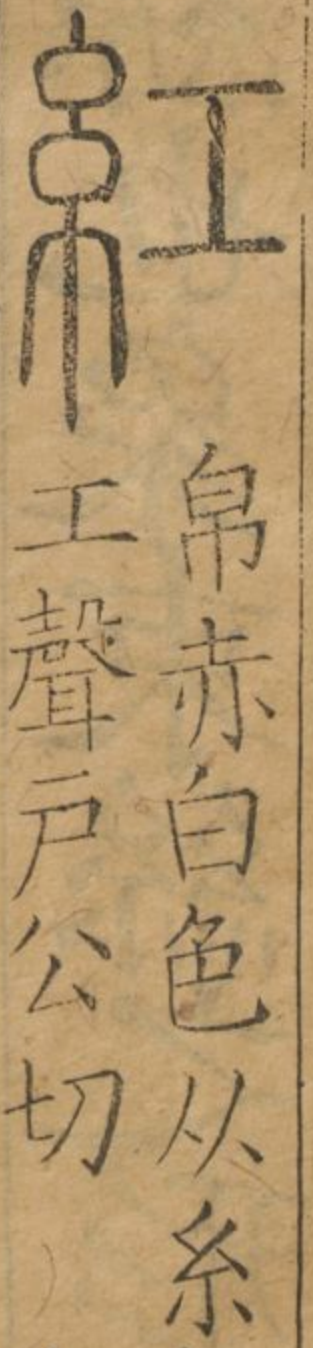 紅
帛赤白色从糸
工聲戶公切